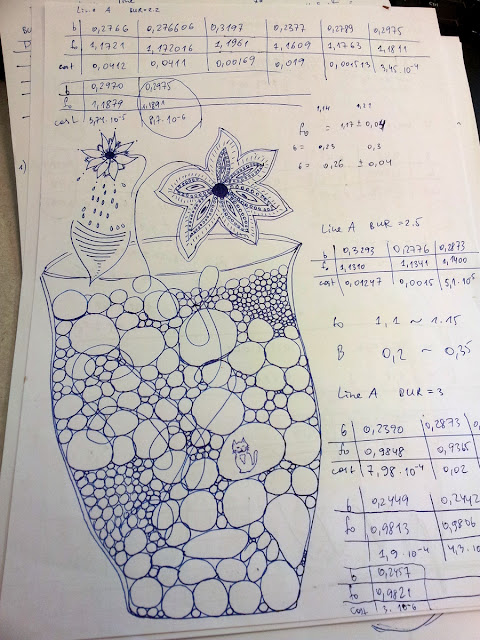 Line A BUR=2.2
6 0,2766 0,276606 0,3197 0,2377 0,2789 0,2975
fo 1,1721 1,172016 1,1961 1,1609 1,1763 1,1811
cost 0,0412 0,0411 0,00169 0,019 0,001513 3,45·10⁻⁴
6 0,2970 0,2975
fo 1,1879 1,1891
cost 3,74·10⁻⁵ 8,7·10⁻⁶
1,14 1,21
fo = 1,17 ± 0,04
6 = 0,23 0,3
6 = 0,26 ± 0,04
Line A BUR=2.5
6 0,3293 0,2776 0,2873
fo 1,1310 1,1341 1,1400
cost 0,01247 0,0015 5,1·10⁻⁵
fo 1,1 ~ 1.15
B 0,2 ~ 0,35
Line A BUR=3
6 0,2390 0,2873
fo 0,9848 0,9365
cost 7,98·10⁻⁴ 0,02
6 0,2449 0,2442
fo 0,9813 0,9806
1,9·10⁻⁴ 4,3·10
6 0,2457
fo 0,9821
cost 3·10⁻⁶